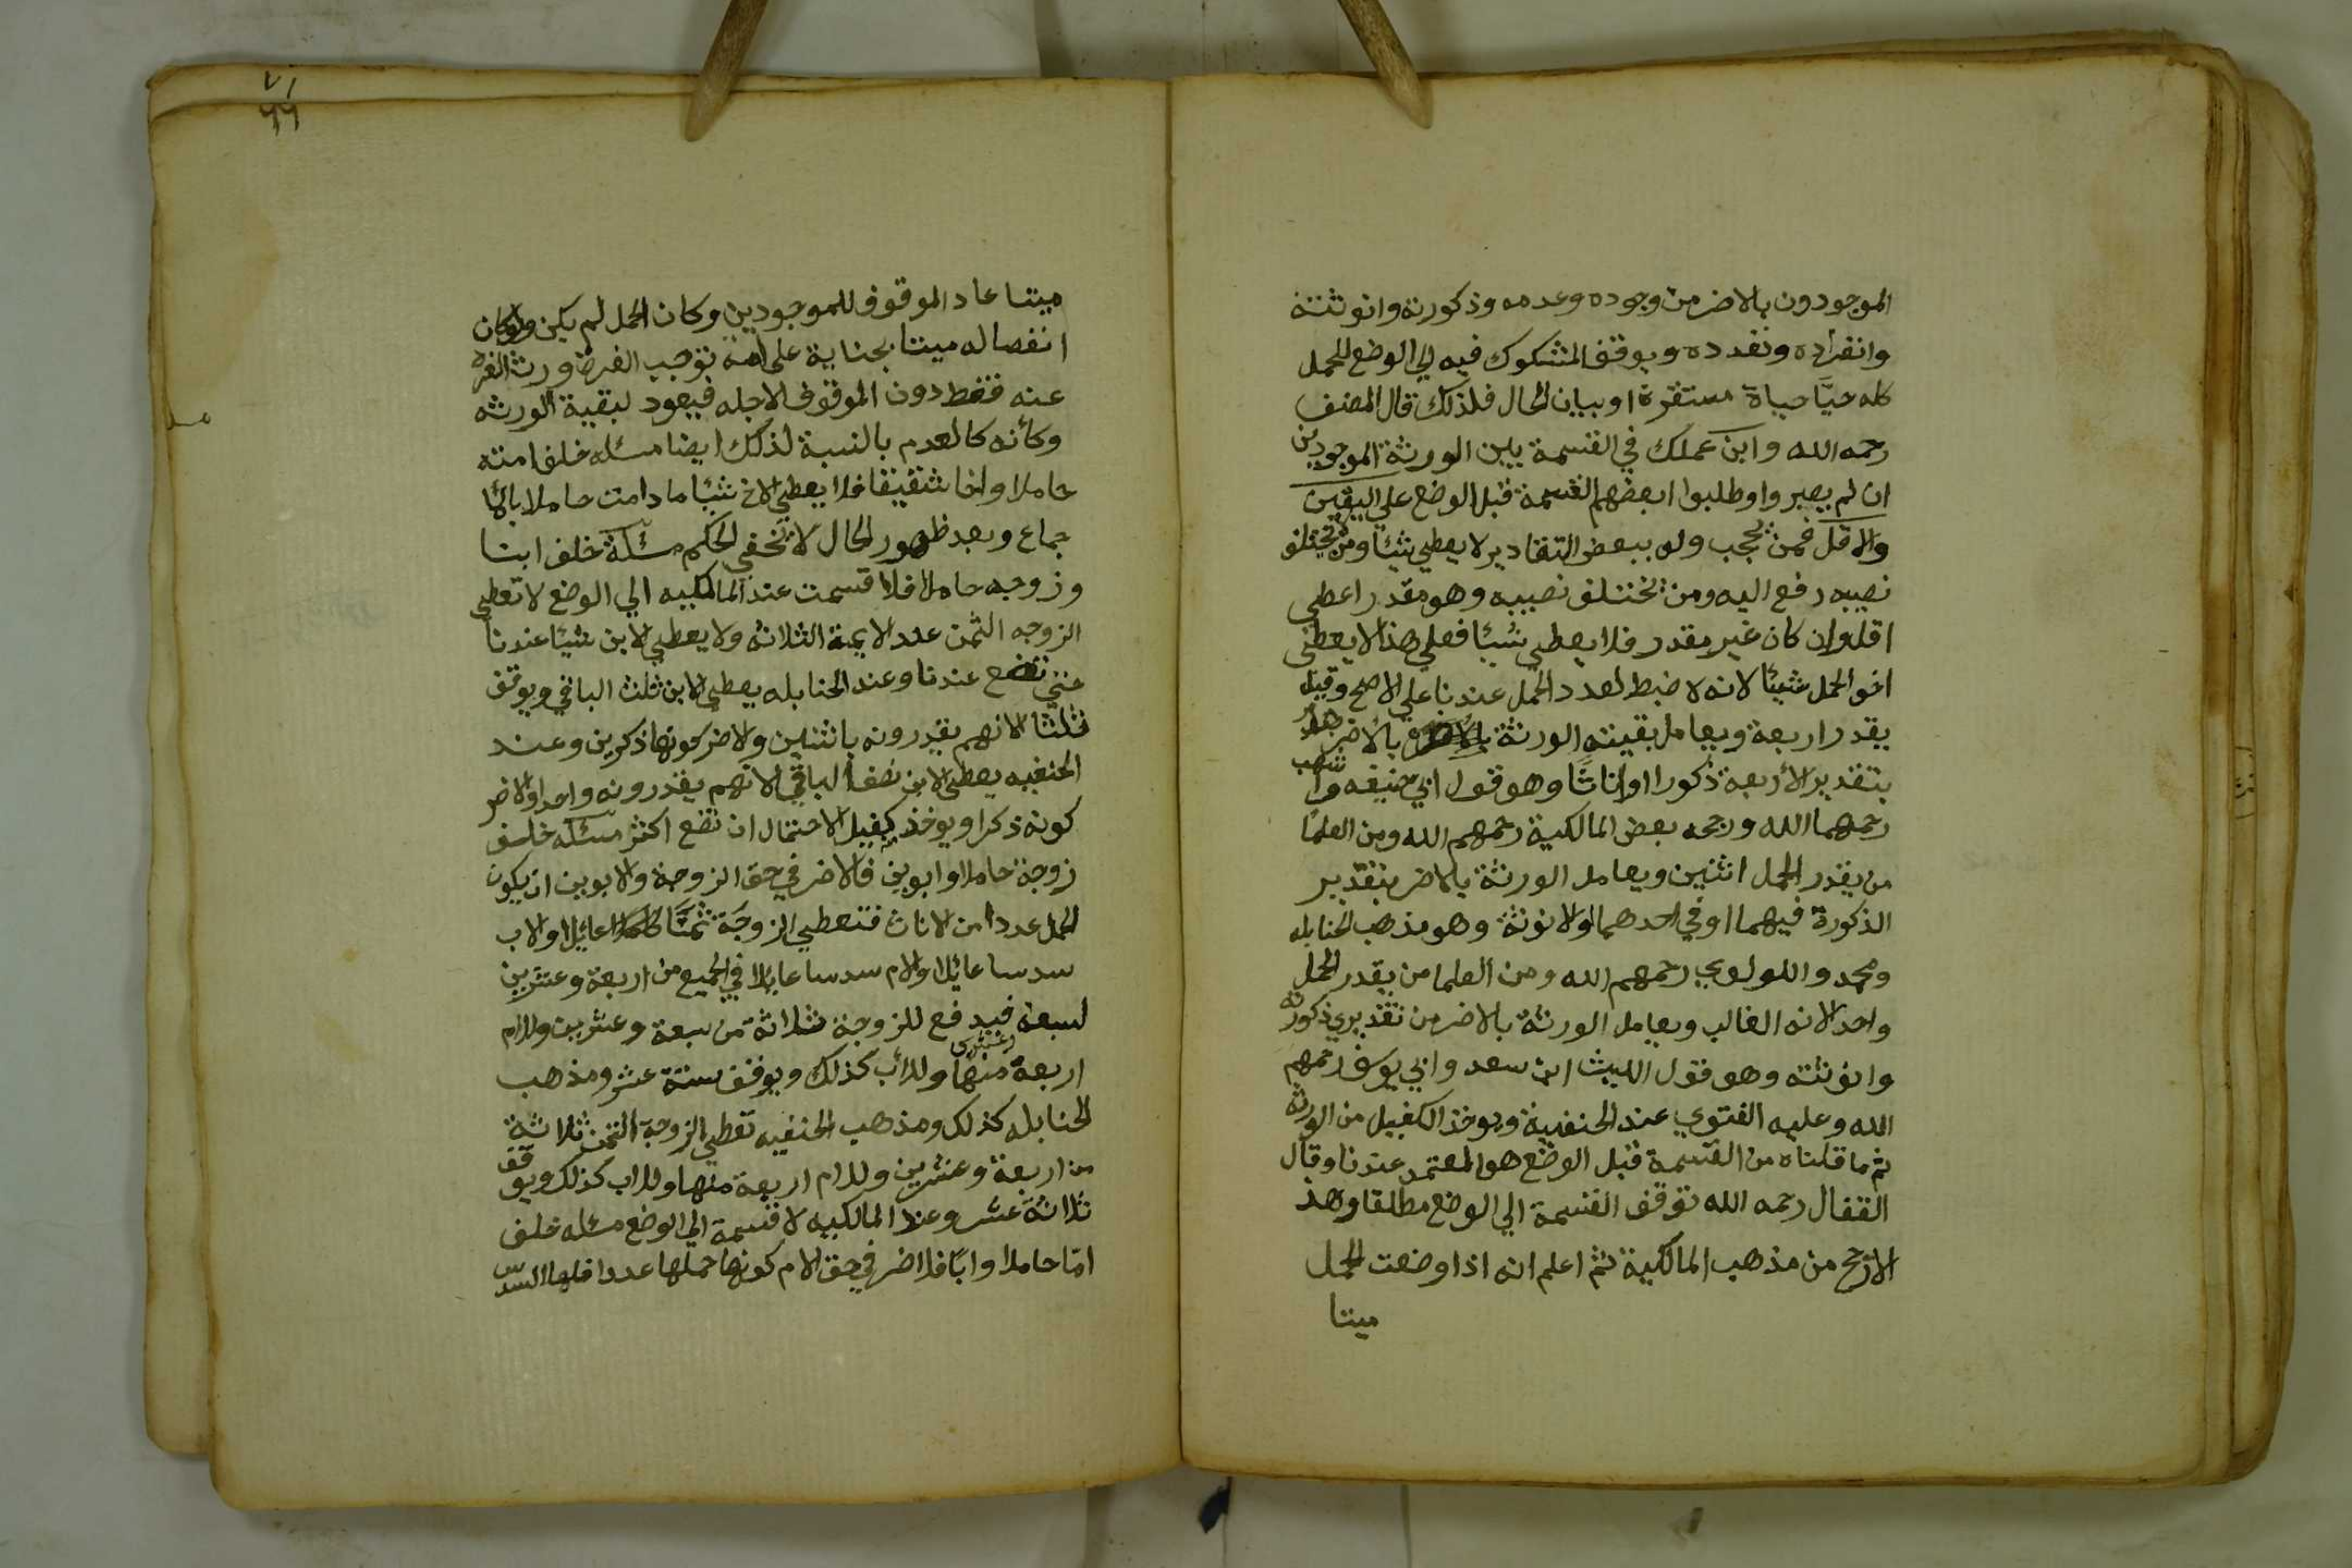 الموجودون بالاضر من وجوده وعدمه وذكورته وانوثته
وانفراده وتعدده ويوقف المشكوك فيه الي الوضع للحمل
كله حيًا حياة مستقرة او بيان الحال فلذلك قال المصنف
رحمه الله وابن عملك في القسمة بين الورثة الموجودين
ان لم يصبروا وطلبوا بعضهم القسمة قبل الوضع علي اليقين
والاقل فمن يحجب ولو ببعض التقادير لا يعطي شيئا ومن لا يختلف
نصيبه دفع اليه ومن يختلف نصيبه وهو مقدر اعطي
اقله وان كان غير مقدر فلا يعطي شيئا فعلي هذا لا يعطي
اخو الحمل شيئا لانه لا ضبط لعدد الحمل عندنا علي الاصح وقيل
يقدر اربعة ويعامل بقيته الورثة بالاضر
بتقدير الأربعة ذكورا او اناثًا وهو قول ابي حنيفه واشهب
رحمهما الله ورجحه بعض المالكية رحمهم الله ومن العلما
من يقدر الحمل اثنين ويعامل الورثة بالاضر بتقدير
الذكورة فيهما او في احدهما والانوثة وهو مذهب الحنابله
ومحمد واللولوي رحمهم الله ومن العلما من يقدر الحمل
واحد لانه الغالب ويعامل الورثة بالاضر من تقديري ذكورته
وانوثته وهو قول الليث ابن سعد وابي يوسف رحمهم
الله وعليه الفتوي عند الحنفية ويوخذ الكفيل من الورثة
ثم ما قلناه من القسمة قبل الوضع هو المعتمد عندنا وقال
القفال رحمه الله توقف القسمة الي الوضع مطلقا وهذ
الارجح من مذهب المالكية ثم اعلم انه اذا وضعت الحمل
ميتا
٧١
٦٦
ميتا عاد الموقوف للموجودين وكان الحمل لم يكن ولو كان
انفصاله ميتا بجناية على امه توجب الغرة ورث الغرة
عنه فقط دون الموقوف لاجله فيعود لبقية الورثه
وكأنه كالعدم بالنسبة لذلك ايضا مسئله خلف امته
حاملا واخا شقيقا فلا يعطي الاخ شيئا ما دامت حاملا بالا
جماع وبعد ظهور الحال لا تخفي الحكم مسئلة خلف ابنا
وزوجه حاملا فلا قسمت عند المالكيه الي الوضع لا تعطي
الزوجه الثمن عند الايمة الثلاثه ولا يعطي الابن شيئا عندنا
حتي تضع عندنا وعند الحنابله يعطي الابن ثلث الباقي ويوقف
ثلثا لانهم يقدرونه باثنين والاضر كونهما ذكرين وعند
الحنفيه يعطي الابن نصف الباقي لانهم يقدرونه واحد او الاضر
كونه ذكرا ويوخذ كفيل لاحتمال ان تضع اكثر مسئله خلف
زوجة حاملا وابوين فالاضر في حق الزوجة والابوين ان يكون
الحمل عددا من الاناث فتعطي الزوجة ثمنًا عائلا والاب
سدسا عائلا والام سدسا عايلا في الجميع من اربعة وعشرين
لسبعة وعشرين فيدفع للزوجة ثلاثة من سبعة وعشرين وللام
اربعة منها وللأب كذلك ويوقف ستة عشر ومذهب
الحنابله كذلك ومذهب الحنفيه تعطي الزوجة الثمن ثلاثة
من اربعة وعشرين وللام اربعة منها وللاب كذلك ويوقف
ثلاثة عشر وعند المالكيه لا قسمة الي الوضع مسئله خلف
امّا حاملا وابًا فلاضر في حق الام كونها حملها عددا فلها السدس